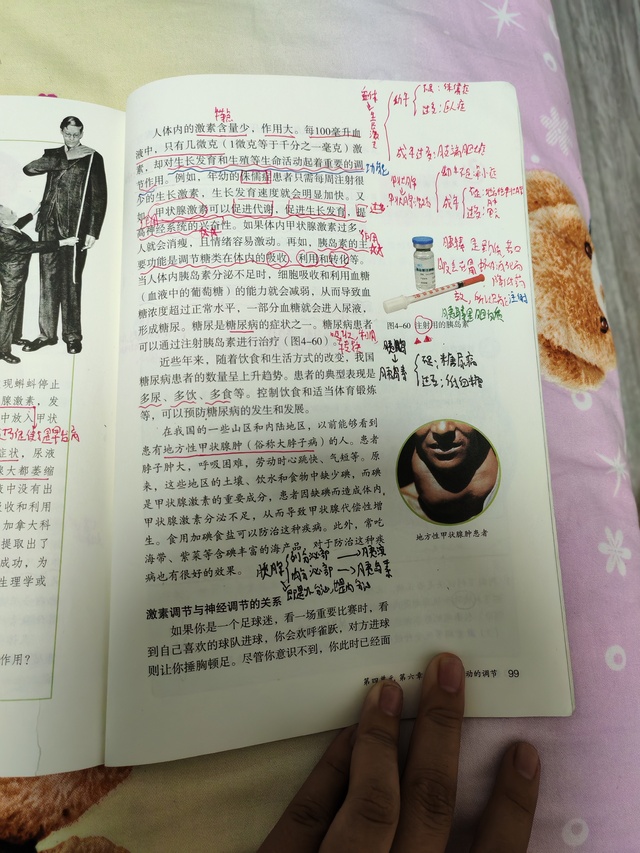 现蝌蚪停止
腺激素，发
中放入甲状
症状，尿液
腺大都萎缩
液中没有出
收和利用
加拿大科
提取出了
成功，为
生理学或
作用？
特点
人体内的激素含量少，作用大。每100毫升血
液中，只有几微克（1微克等于千分之一毫克）激
素，却对生长发育和生殖等生命活动起着重要的调
节作用。例如，年幼的侏儒症患者只需每周注射很
少的生长激素，生长发育速度就会明显加快。又
如，甲状腺激素可以促进代谢，促进生长发育，提
高神经系统的兴奋性。如果体内甲状腺激素过多，
人就会消瘦，且情绪容易激动。再如，胰岛素的主
要功能是调节糖类在体内的吸收、利用和转化等。
当人体内胰岛素分泌不足时，细胞吸收和利用血糖
（血液中的葡萄糖）的能力就会减弱，从而导致血
糖浓度超过正常水平，一部分血糖就会进入尿液，
形成糖尿。糖尿是糖尿病的症状之一。糖尿病患者
可以通过注射胰岛素进行治疗（图4-60）。
近些年来，随着饮食和生活方式的改变，我国
糖尿病患者的数量呈上升趋势。患者的典型表现是
多尿、多饮、多食等。控制饮食和适当体育锻炼
等，可以预防糖尿病的发生和发展。
在我国的一些山区和内陆地区，以前能够看到
患有地方性甲状腺肿（俗称大脖子病）的人。患者
脖子肿大，呼吸困难，劳动时心跳快、气短等。原
来，这些地区的土壤、饮水和食物中缺少碘，而碘
是甲状腺激素的重要成分，患者因缺碘而造成体内
甲状腺激素分泌不足，从而导致甲状腺代偿性增
生。食用加碘食盐可以防治这种疾病。此外，常吃
海带、紫菜等含碘丰富的海产品，对于防治这种疾
病也有很好的效果。
胰腺
外分泌部→胰液
内分泌部→胰岛素
激素调节与神经调节的关系
如果你是一个足球迷，看一场重要比赛时，看
到自己喜欢的球队进球，你会欢呼雀跃，对方进球
则让你捶胸顿足。尽管你意识不到，你此时已经面
幼年
过多：巨人症
成年过多：肢端肥大症
功能
成年
图4-60 注射用的胰岛素
胰岛素
糖尿病
过多：低血糖
地方性甲状腺肿患者
第四单元 第六章
动的调节 99